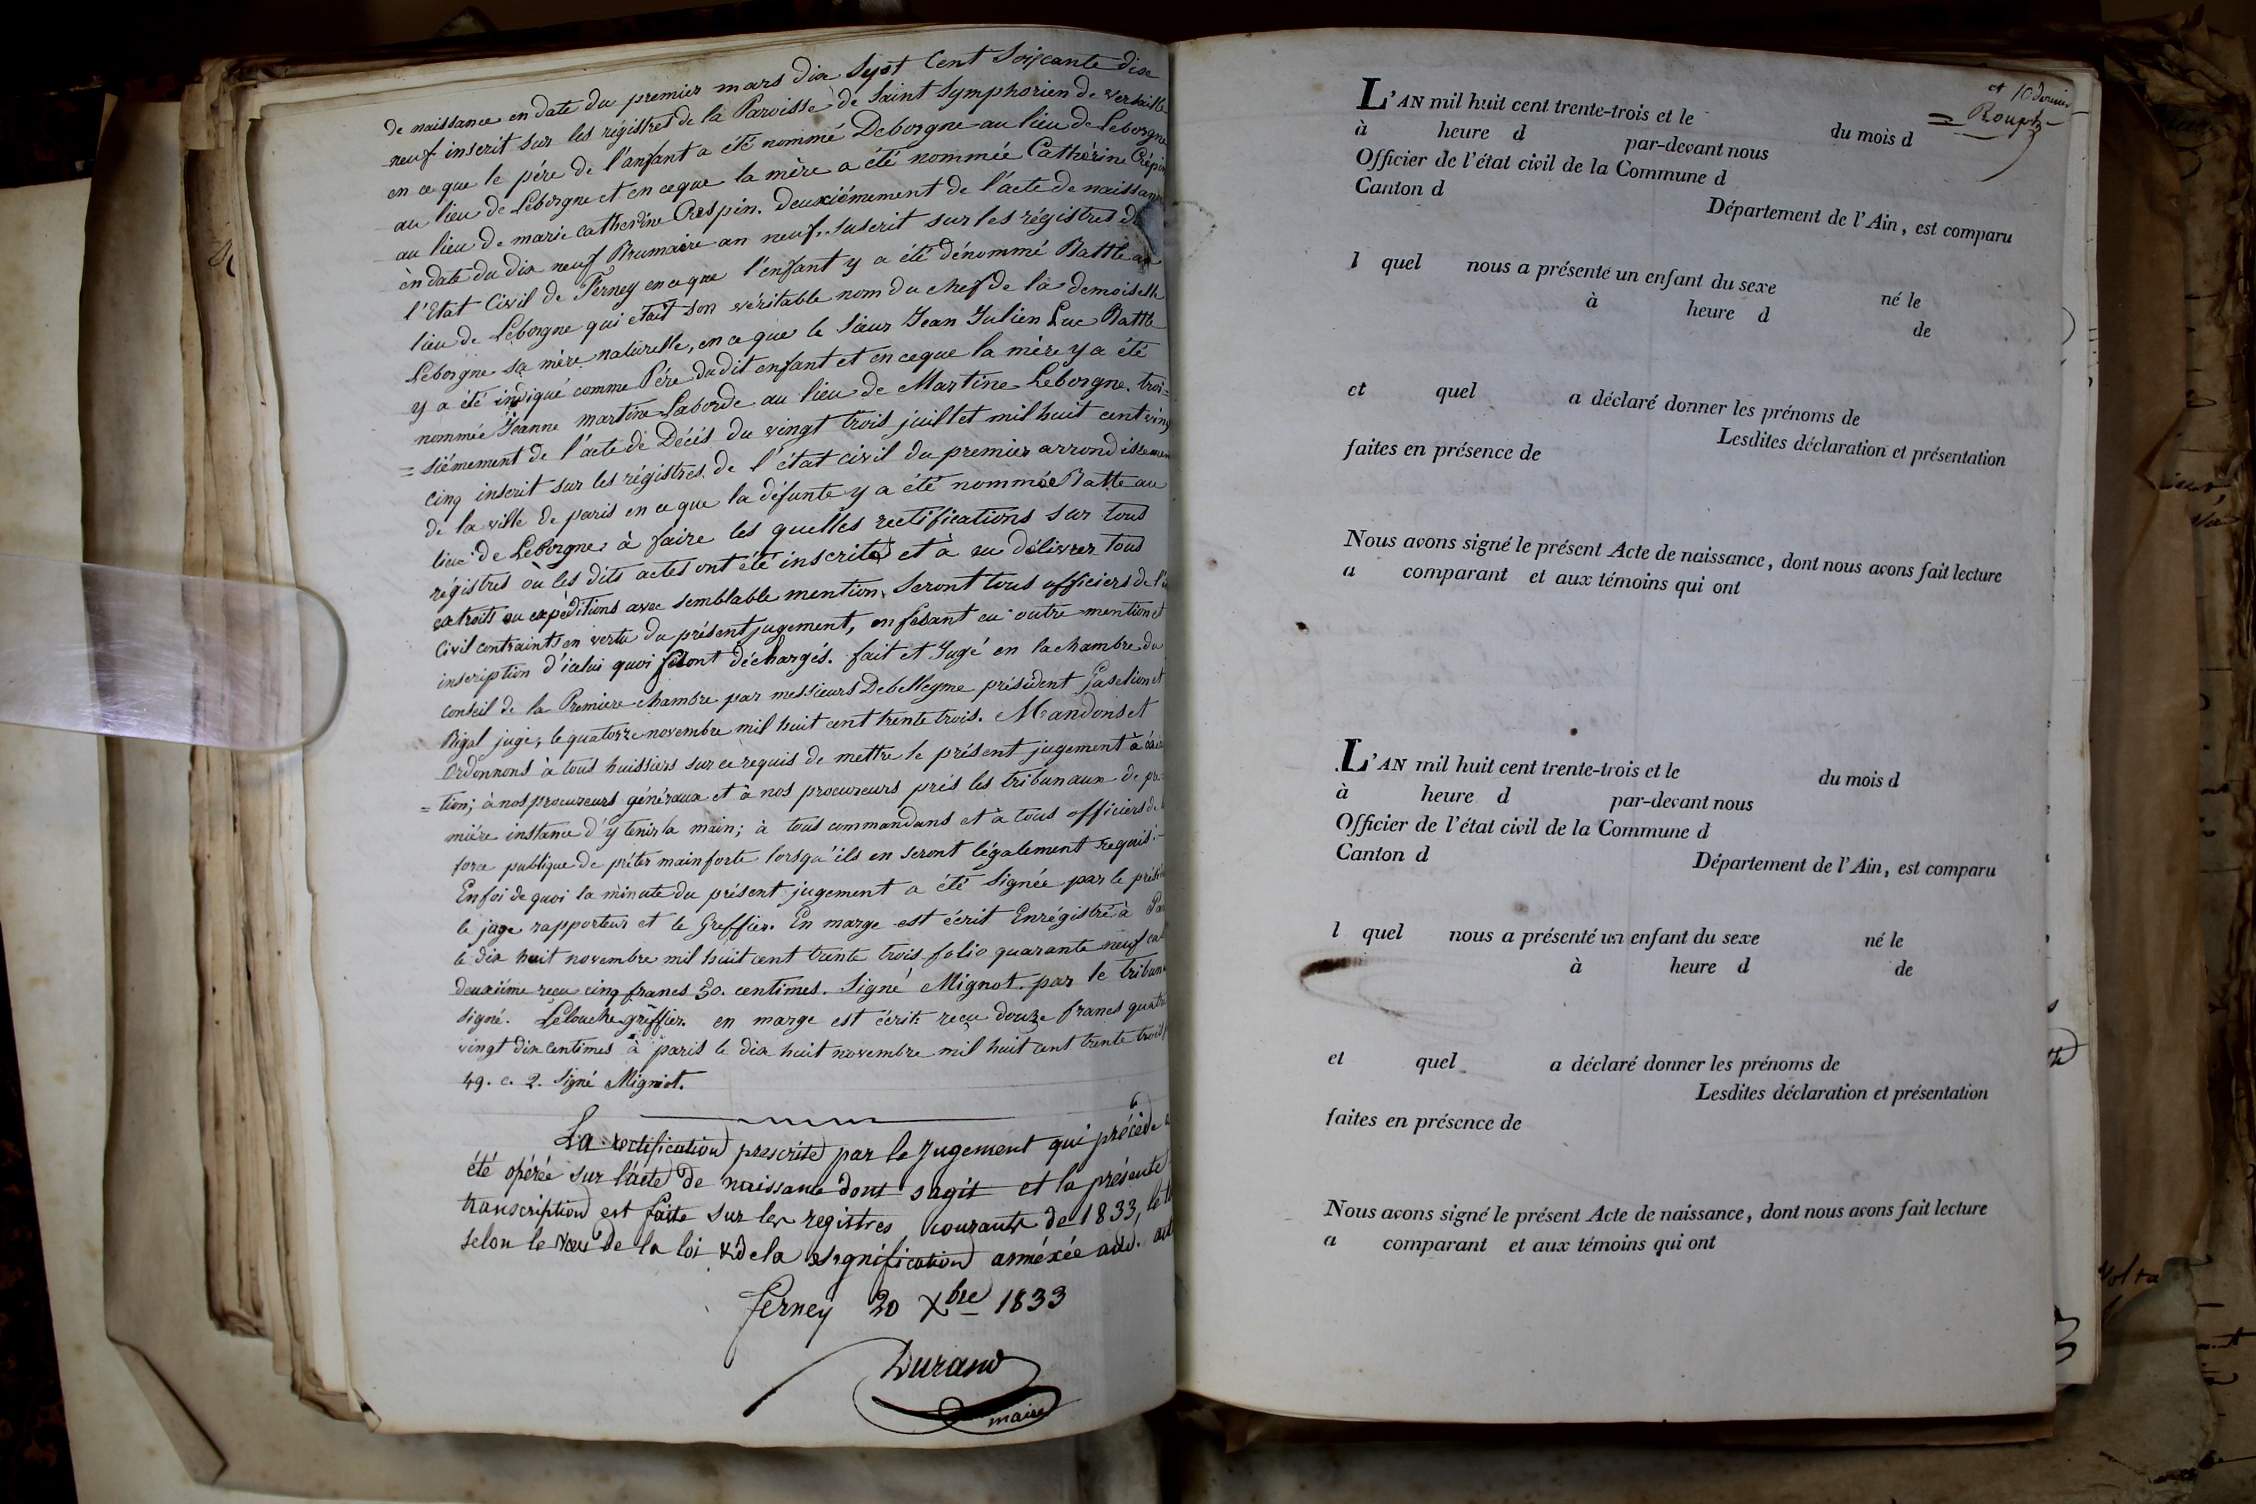 de naissance en date du premier mars dix Sept Cent Soixante dix
neuf inscrit sur les régistres de la Paroisse de Saint Symphorien de Versaille
en ce que le père de l'enfant a été nommé Deborgne au lieu de Leborgne
au lieu de Leborgne et en ce que la mère a été nommée Cathérine Crépin
au lieu de marie catherine Crespin. deuxiémement de l'acte de naissance
en date du dix neuf Brumaire an neuf. Inscrit sur les régistres de
l'Etat Civil de Ferney en ce que l'enfant y a été dénommé Battle au
lieu de Leborgne qui etait son véritable nom du chef de la demoiselle
Leborgne sa mère naturelle, en ce que le Sieur Jean Julien Luc Battle
y a été indiqué comme Père dudit enfant et en ce que la mère y a été
nommée Jeanne martine Laborde au lieu de Martine Leborgne. troi=
=siémement de l'acte de Décès du vingt trois juillet mil huit cent vingt
cinq inscrit sur les régistres de l'état civil du premier arrondissement
de la ville de paris en ce que la défunte y a été nommée Batte au
lieu de Leborgne, à faire les quelles rectifications sur tous
régistres où les dits actes ont été inscrits et à en délivrer tous
extraits ou expéditions avec semblable mention. Seront tous officiers de l'
Civil contraints en vertu du présent jugement, en fesant en outre mention et
inscription d'icelui quoi fesant déchargés. fait et Jugé en la chambre du
conseil de la Première chambre par messieurs Debelleyme président
Rigal juge, le quatorze novembre mil huit cent trente trois. Mandons et
Ordonnons à tous huissiers sur ce requis de mettre le présent jugement à
=tion; à nos procureurs généraux et à nos procureurs près les tribunaux de pre=
mière instance d'y tenir la main; à tous commandans et à tous officiers de
force publique de prêter main forte lorsqu'ils en seront légalement requis.
En foi de quoi la minute du présent jugement a été Signée par le
le juge rapporteur et le Greffier. En marge est écrit Enrégistré à
le dix huit novembre mil huit cent trente trois folio quarante neuf
deuxiéme reçu cinq francs 50. centimes. Signé Mignot. par le tribunal
signé. greffier. en marge est écrit reçu douze francs quatre
vingt dix centimes à paris le dix huit novembre mil huit cent trente trois
49. c. 2. Signé Migniot.
La rectification prescrite par le Jugement qui précède a
été opérée sur l'acte de naissance dont s'agit et la présente
transcription est faite sur les registres courants de 1833, le
selon le vœu de la loi & de la signification annéxée
ferney 20 Xbre 1833
Durand
maire
et 10 dernier
L'AN mil huit cent trente-trois et le du mois d
à heure d par-devant nous
Officier de l'état civil de la Commune d
Canton d Département de l'Ain, est comparu
l quel nous a présenté un enfant du sexe né le
à heure d de
et quel a déclaré donner les prénoms de
Lesdites déclaration et présentation
faites en présence de
Nous avons signé le présent Acte de naissance, dont nous avons fait lecture
a comparant et aux témoins qui ont
L'AN mil huit cent trente-trois et le du mois d
à heure d par-devant nous
Officier de l'état civil de la Commune d
Canton d Département de l'Ain, est comparu
l quel nous a présenté un enfant du sexe né le
à heure d de
et quel a déclaré donner les prénoms de
Lesdites déclaration et présentation
faites en présence de
Nous avons signé le présent Acte de naissance, dont nous avons fait lecture
a comparant et aux témoins qui ont